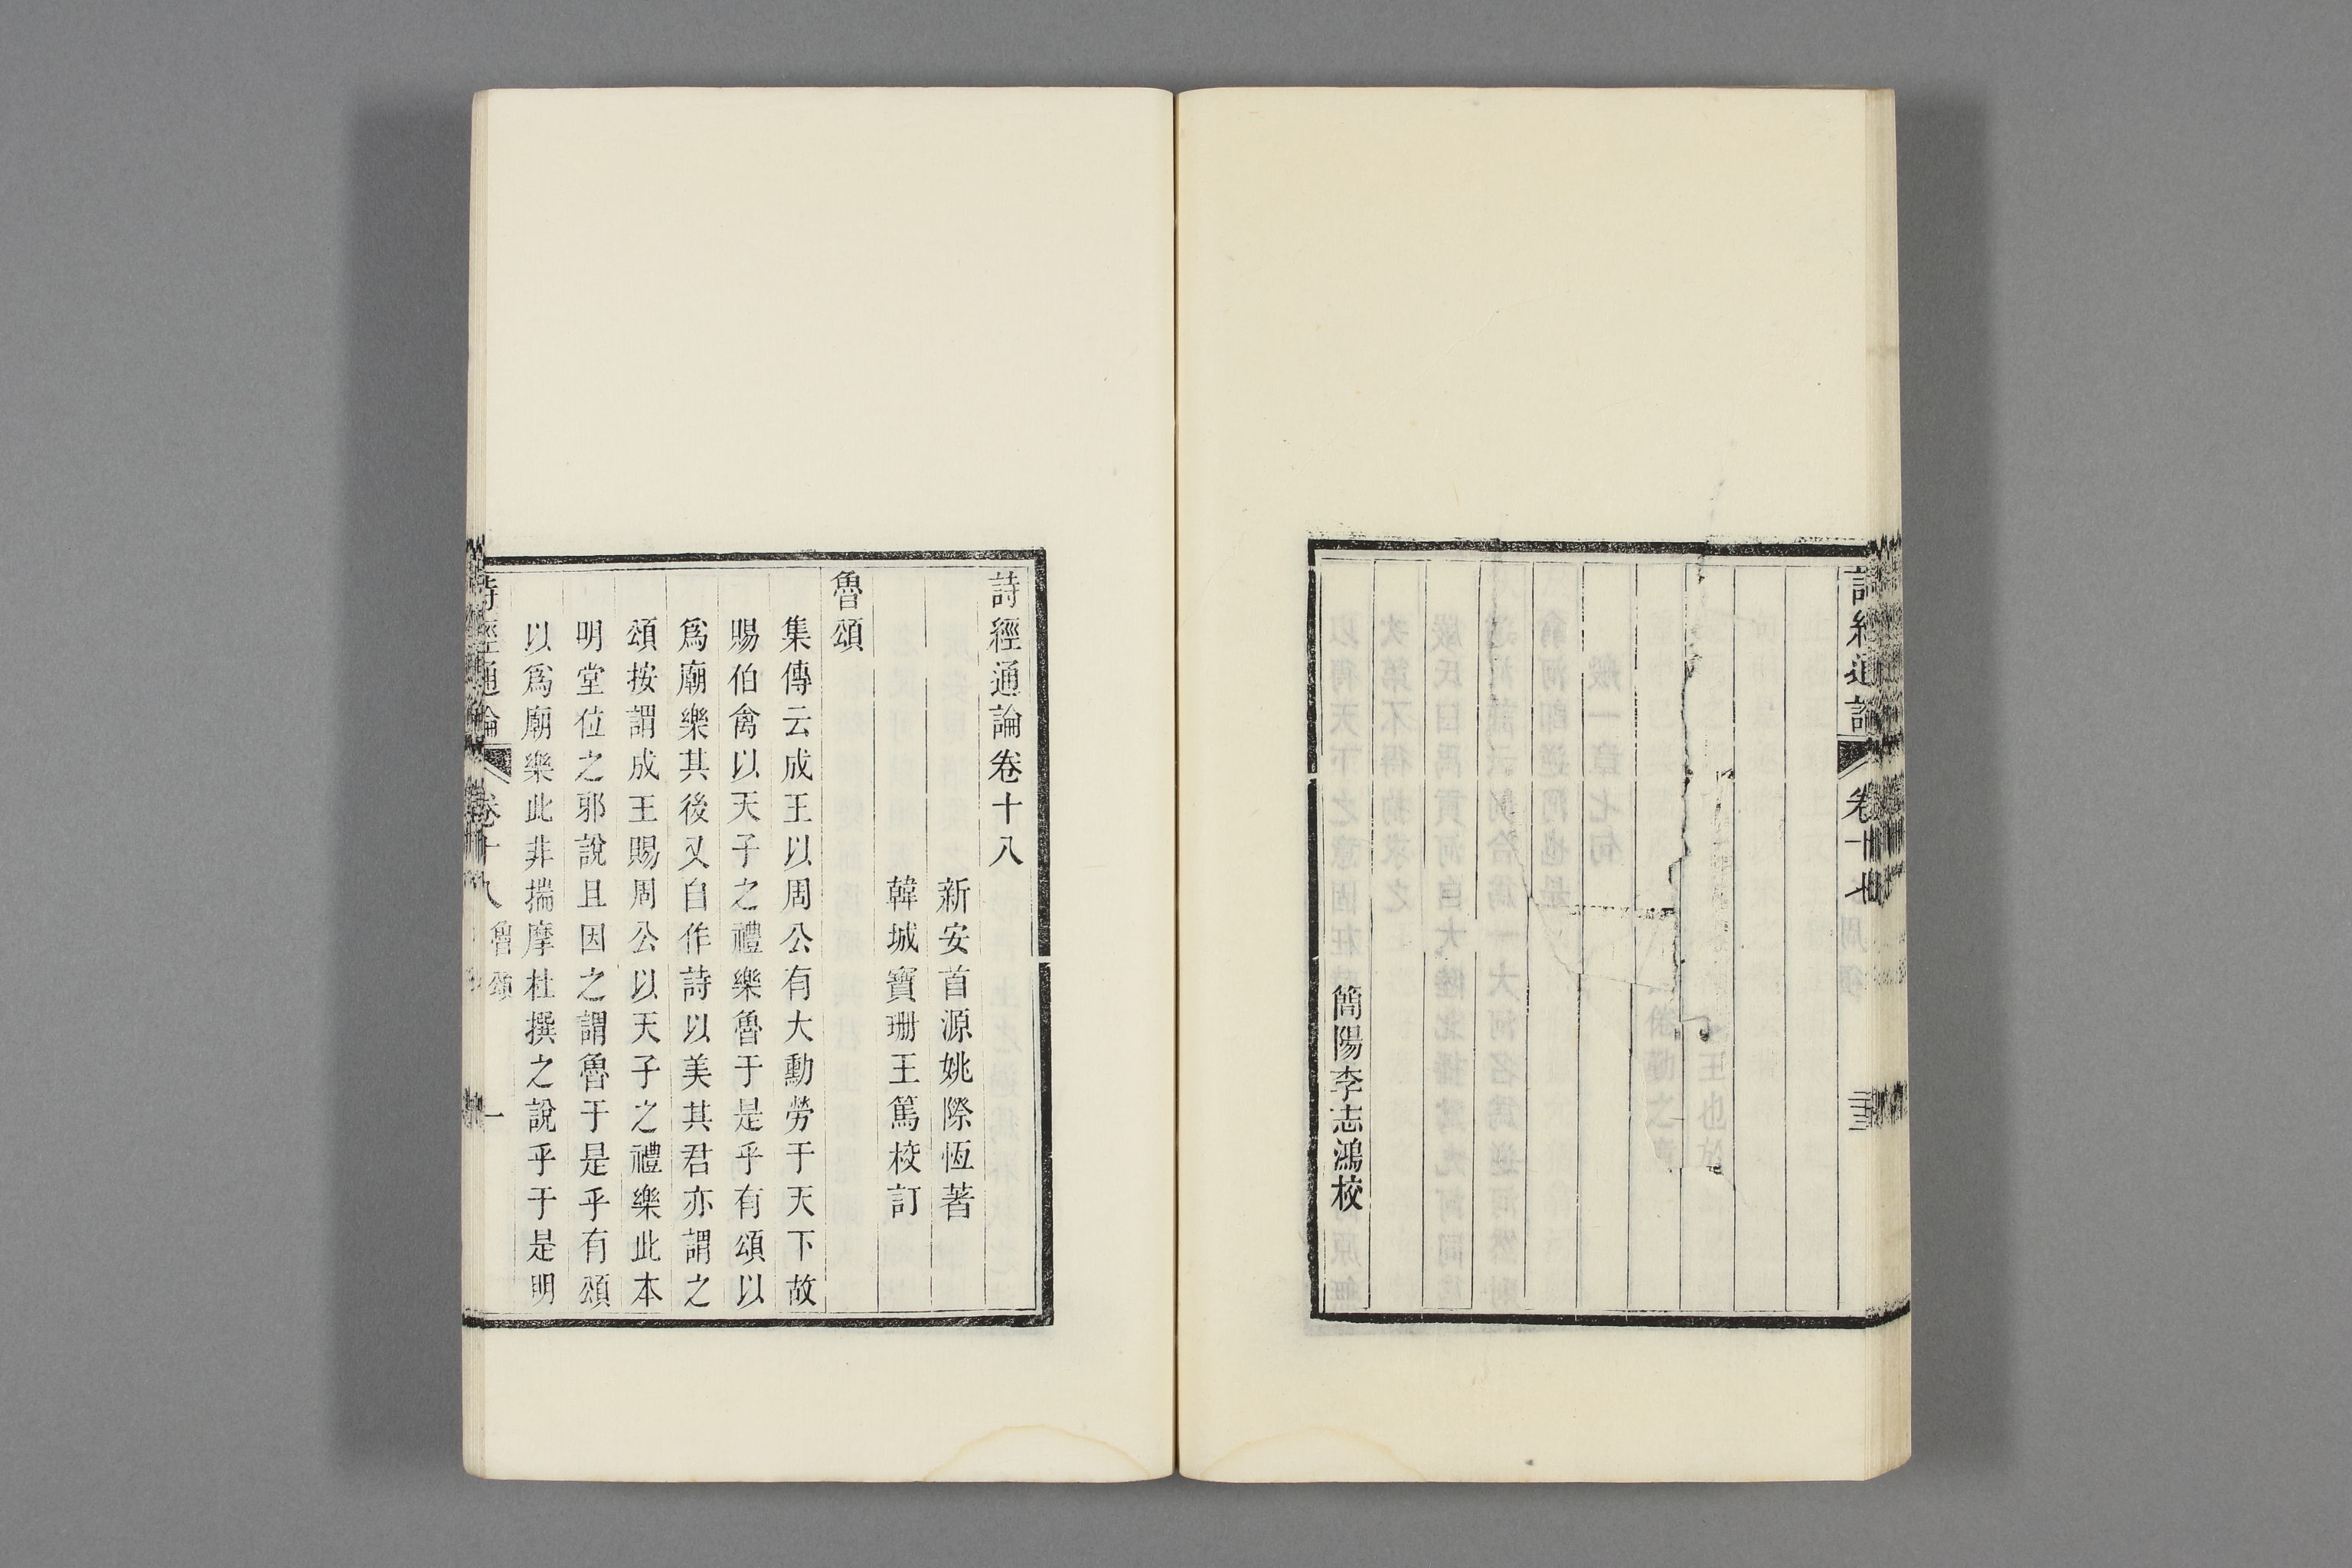 簡陽李志鴻校
詩經通論卷十八
新安首源姚際恆著
韓城寶珊王篤校訂
魯頌
集傳云成王以周公有大勳勞于天下故
賜伯禽以天子之禮樂魯于是乎有頌以
爲廟樂其後又自作詩以美其君亦謂之
頌按謂成王賜周公以天子之禮樂此本
明堂位之邪說且因之謂魯于是乎有頌
以爲廟樂此非揣摩杜撰之說乎于是明
詩經通論
卷十八
魯頌
一